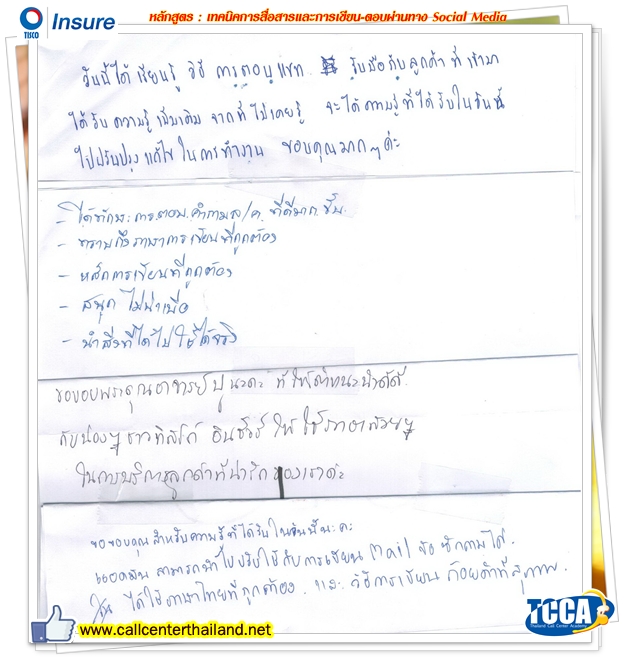 TISCO Insure
หลักสูตร : เทคนิคการสื่อสารและการเขียน-ตอบผ่านทาง Social Media
วันนี้ได้เรียนรู้ วิธี การตอบแชท รับมือกับลูกค้า ที่เข้ามา
ได้รับความรู้เพิ่มเติม จากที่ไม่เคยรู้ จะได้ความรู้ที่ได้รับในวันนี้
ไปปรับปรุง แก้ไข ในการทำงาน ขอบคุณมากๆค่ะ
- ได้ทักษะการตอบคำถามลูกค้า ที่ดีมากขึ้น
- ทราบถึงภาษาการเขียนที่ถูกต้อง
- หลักการเขียนที่ถูกต้อง
- สนุก ไม่น่าเบื่อ
- นำสิ่งที่ได้ไปใช้ได้จริง
ขอขอบพระคุณอาจารย์ ที่ให้คำแนะนำดีดี
กับน้องๆ ชาวทิสโก้ อินชัวร์ ให้ใช้ภาษาสวยๆ
ในการบริการลูกค้าที่น่ารักของเราค่ะ
ขอขอบคุณสำหรับความรู้ที่ได้รับในวันนี้นะคะ
สามารถนำไปปรับใช้กับการเขียน Mail
ได้ใช้ภาษาไทยที่ถูกต้อง และ วิธีการเขียน ถ้อยคำที่สุภาพ.
www.callcenterthailand.net
TCCA
Thailand Call Center Academy